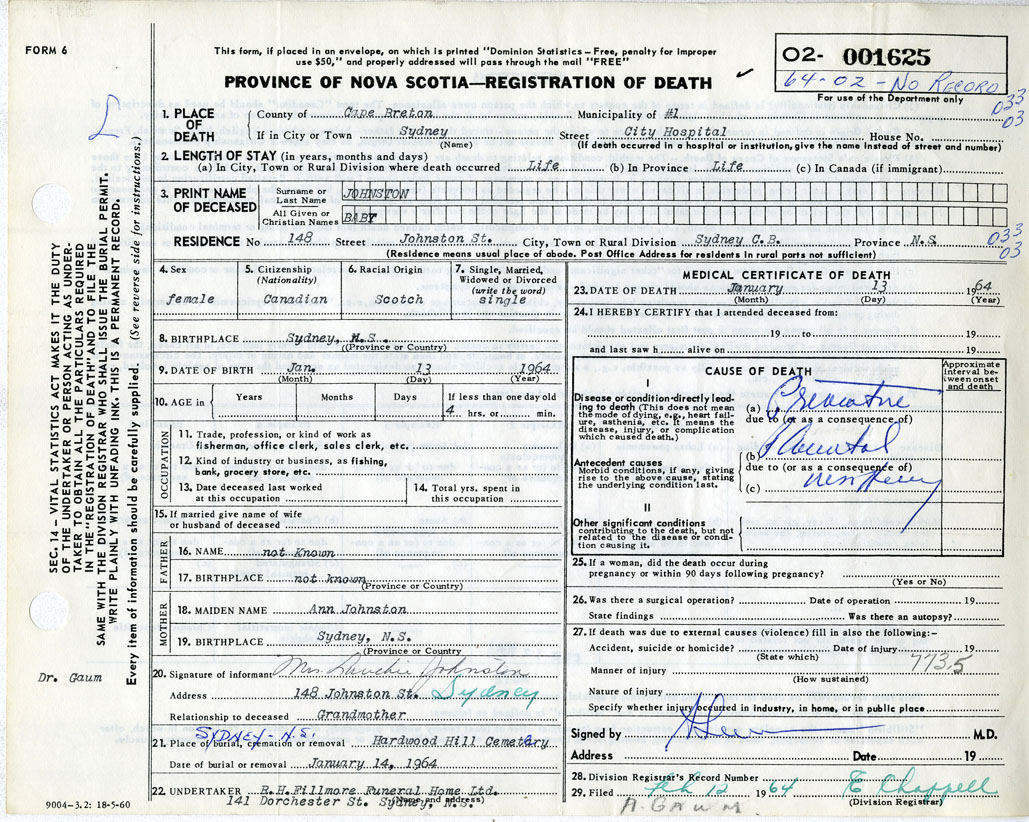 FORM 6
This form, if placed in an envelope, on which is printed "Dominion Statistics – Free, penalty for improper
use $50," and properly addressed will pass through the mail "FREE"
PROVINCE OF NOVA SCOTIA—REGISTRATION OF DEATH
02- 001625
64-02 - NO RECORD
For use of the Department only
033
03
L
1. PLACE OF DEATH
County of Cape Breton Municipality of #1
If in City or Town Sydney Street City Hospital House No.
(Name) (If death occurred in a hospital or institution, give the name instead of street and number)
2. LENGTH OF STAY (in years, months and days)
(a) In City, Town or Rural Division where death occurred Life (b) In Province Life (c) In Canada (if immigrant)
3. PRINT NAME OF DECEASED
Surname or Last Name JOHNSTON
All Given or Christian Names BABY
RESIDENCE No 148 Street Johnston St. City, Town or Rural Division Sydney C.B. Province N.S.
033
03
(Residence means usual place of abode. Post Office Address for residents in rural parts not sufficient)
4. Sex
female
5. Citizenship
(Nationality)
Canadian
6. Racial Origin
Scotch
7. Single, Married,
Widowed or Divorced
(write the word)
single
8. BIRTHPLACE Sydney, N.S.
(Province or Country)
9. DATE OF BIRTH Jan. 13 1964
(Month) (Day) (Year)
10. AGE in
Years Months Days If less than one day old
4 hrs. or min.
OCCUPATION
11. Trade, profession, or kind of work as
fisherman, office clerk, sales clerk, etc.
12. Kind of industry or business, as fishing,
bank, grocery store, etc.
13. Date deceased last worked
at this occupation
14. Total yrs. spent in
this occupation
15. If married give name of wife
or husband of deceased
FATHER
16. NAME not Known
17. BIRTHPLACE not known
(Province or Country)
MOTHER
18. MAIDEN NAME Ann Johnston
19. BIRTHPLACE Sydney, N.S.
(Province or Country)
20. Signature of informant Mrs Johnston
Address 148 Johnston St. Sydney
Relationship to deceased Grandmother
SYDNEY - N.S.
21. Place of burial, cremation or removal Hardwood Hill Cemetery
Date of burial or removal January 14, 1964
22. UNDERTAKER E.H.Fillmore Funeral Home Ltd.
141 Dorchester St. Sydney, N.S.
(Name and address)
MEDICAL CERTIFICATE OF DEATH
23. DATE OF DEATH January 13 1964
(Month) (Day) (Year)
24. I HEREBY CERTIFY that I attended deceased from:
19 to 19
and last saw h alive on 19
CAUSE OF DEATH
Approximate
interval be-
tween onset
and death
I
Disease or condition directly lead-
ing to death (This does not mean
the mode of dying, e.g., heart failure,
asthenia, etc. It means the
disease, injury, or complication
which caused death.)
(a) Premature
due to (or as a consequence of)
(b)
Antecedent causes
Morbid conditions, if any, giving
rise to the above cause, stating
the underlying condition last.
due to (or as a consequence of)
(c)
II
Other significant conditions
contributing to the death, but not
related to the disease or condi-
tion causing it.
25. If a woman, did the death occur during
pregnancy or within 90 days following pregnancy?
(Yes or No)
26. Was there a surgical operation? Date of operation 19
State findings Was there an autopsy?
27. If death was due to external causes (violence) fill in also the following:–
Accident, suicide or homicide? Date of injury 19
(State which)
773.5
Manner of injury
(How sustained)
Nature of injury
Specify whether injury occurred in industry, in home, or in public place
Signed by M.D.
Address Date 19
28. Division Registrar's Record Number
29. Filed Feb 12 1964 E Chappell
(Division Registrar)
A-GAUM
SEC. 14 – VITAL STATISTICS ACT MAKES IT THE DUTY
OF THE UNDERTAKER OR PERSON ACTING AS UNDER-
TAKER TO OBTAIN ALL THE PARTICULARS REQUIRED
IN THE "REGISTRATION OF DEATH" AND TO FILE THE
SAME WITH THE DIVISION REGISTRAR WHO SHALL ISSUE THE BURIAL PERMIT.
WRITE PLAINLY WITH UNFADING INK. THIS IS A PERMANENT RECORD.
Every item of information should be carefully supplied. (See reverse side for instructions.)
Dr. Gaum
9004-3.2: 18-5-60